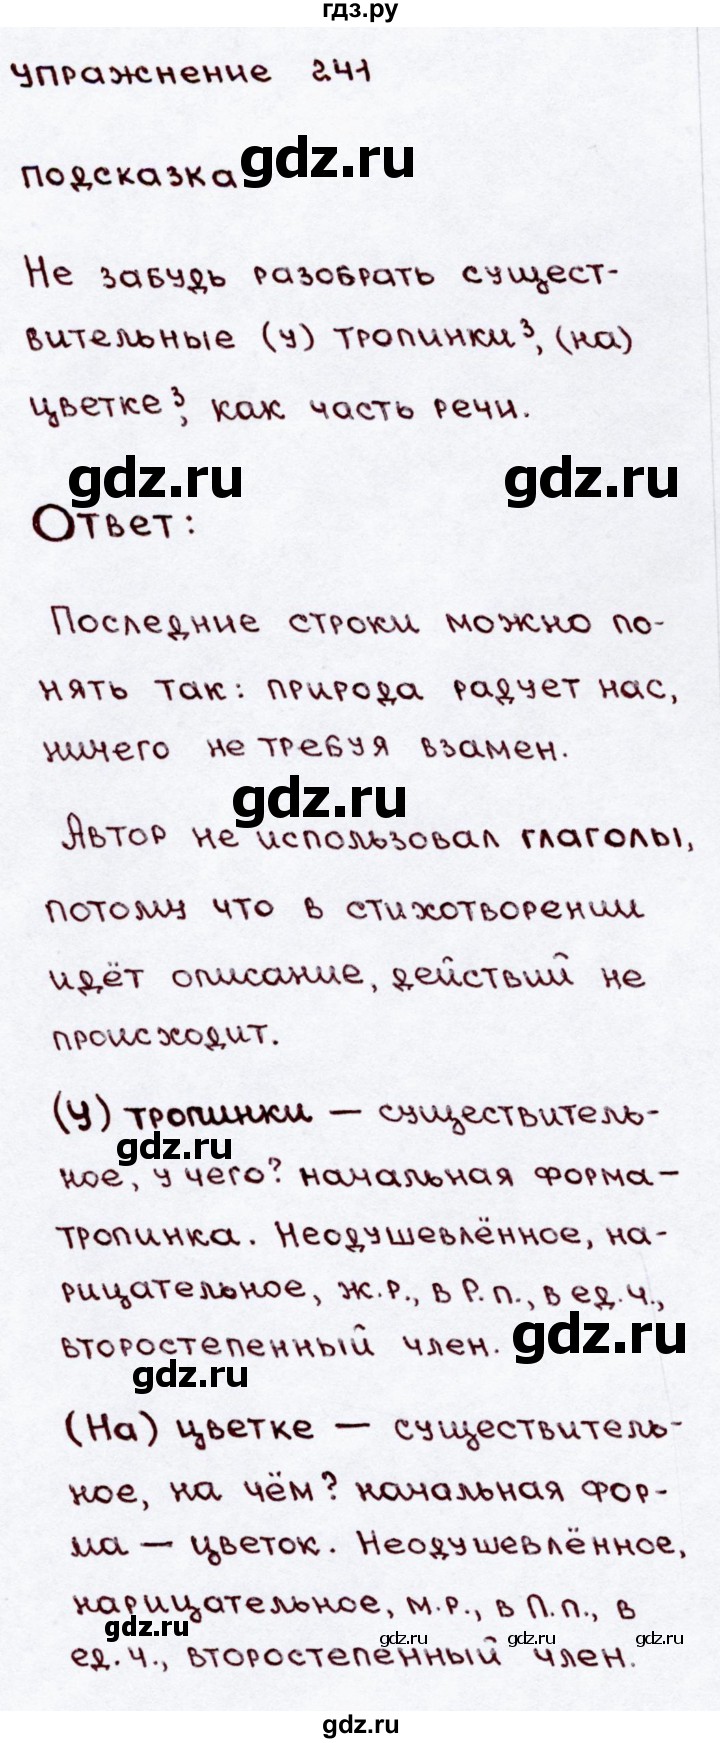 гдз.ру
упражнение 241
подсказка gdz.ru
Не забудь разобрать сущест-
вительные (у) тропинки³, (на)
цветке³, как часть речи.
gdz.ru gdz.ru
Ответ:
Последние строки можно по-
нять так: природа радует нас,
ничего не требуя взамен.
gdz.ru
Автор не использовал глаголы,
потому что в стихотворении
идёт описание, действий не
происходит.
(У) тропинки — существитель-
gdz.ru
ное, у чего? начальная форма —
тропинка. Неодушевлённое, на-
рицательное, ж.р., в Р.п., в ед.ч.,
второстепенный член. gdz.ru
gdz.ru
(На) цветке — существитель-
ное, на чём? начальная фор-
ма — цветок. Неодушевлённое,
нарицательное, м.р., в П.п., в
gdz.ru gdz.ru gdz.ru gdz.ru
ед.ч., второстепенный член.
gdz.ru